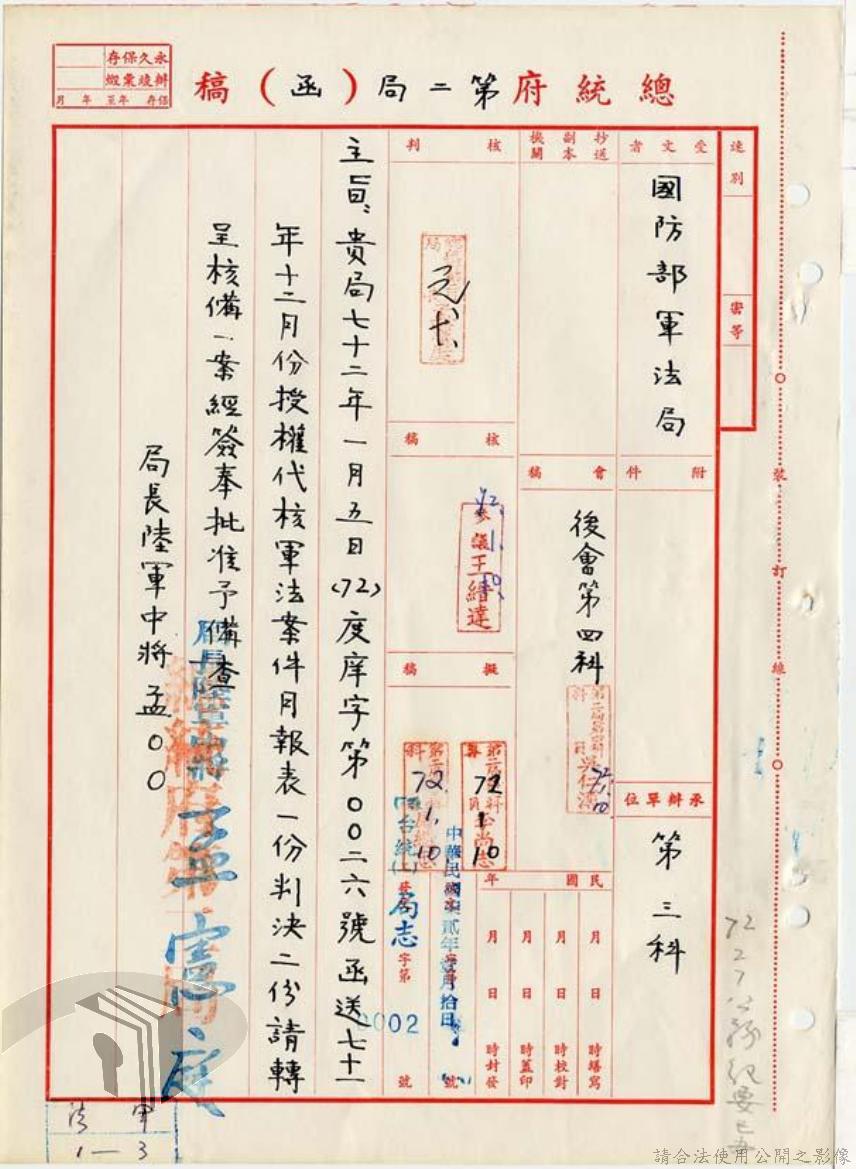 總統府第二局（函）稿
永久保存
辦竣彙繳
保存 年至 年 月
速別
密等
受文者
國防部軍法局
附件
抄送副本機關
會稿
後會第四科
承辦單位
第三科
核判
核稿
72. 1. 10.
參議王縉達
擬稿
72 1 10
72. 1. 10
中華民國柒貳年壹月拾日
(72)台統(二)
局志
發文
字第
0002
號
民國 年
月 日 時繕寫
月 日 時校對
月 日 時蓋印
月 日 時封發
主旨：貴局七十二年一月五日(72)度庠字第００二六號函送七十一
年十二月份授權代核軍法案件月報表一份判決二份請轉
呈核備一案經簽奉批准予備查
局長陸軍中將孟○○
局長陸軍中將
孟憲庭
總統府第二局
裝
訂
線
72 2 7
軍法
1—3
請合法使用公開之影像